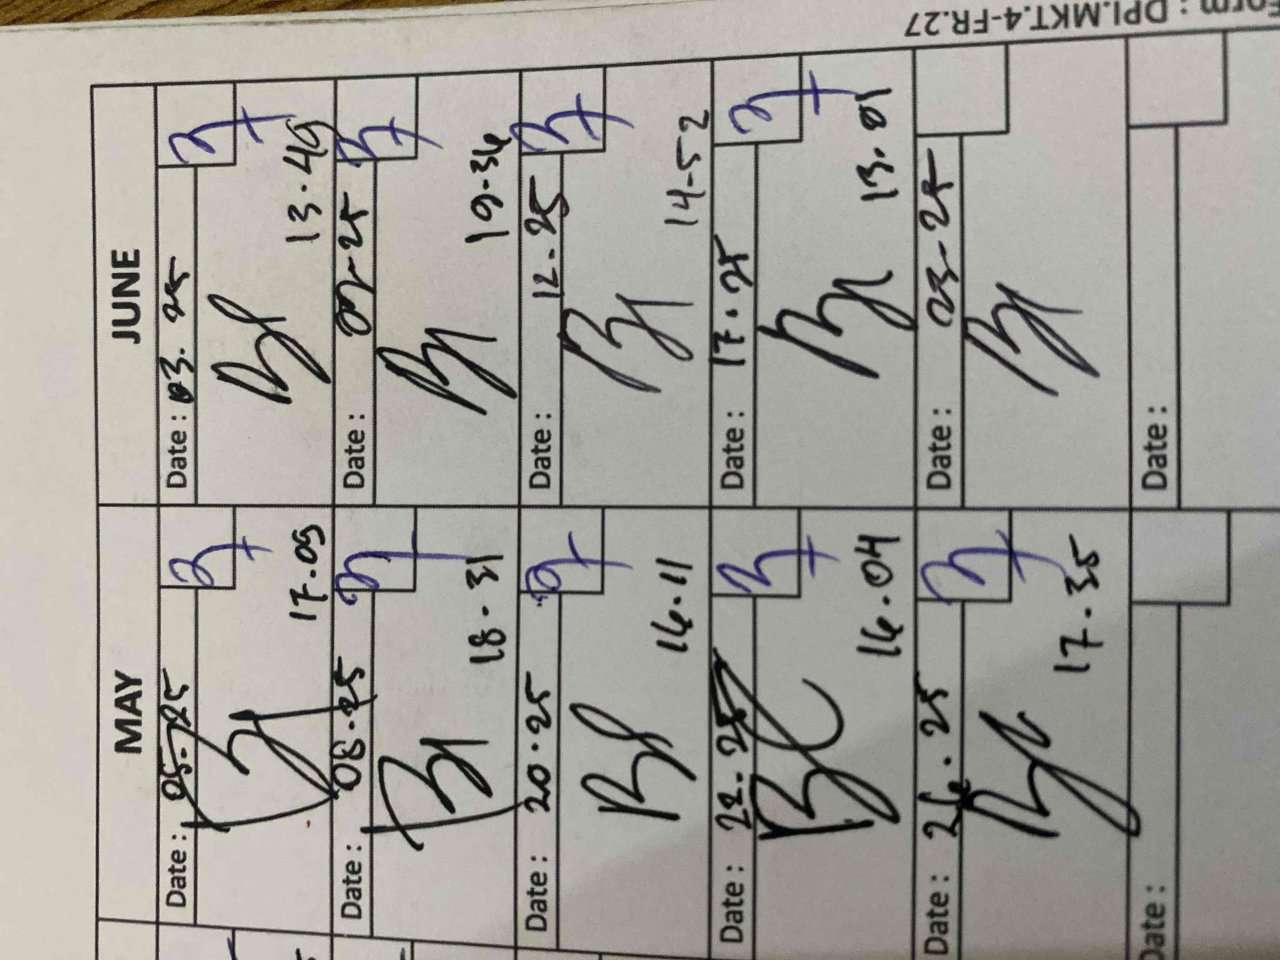 Form : DPI.MKT.4-FR.27
MAY
Date : 05-25
17.09
Date : 08.25
18.31
Date : 20.25
16.11
Date : 22.25
16.04
Date : 26.25
17.35
Date :
JUNE
Date : 03.25
13.49
Date : 09-25
19-36
Date : 12.25
14-52
Date : 17.25
13.01
Date : 23-25
Date :